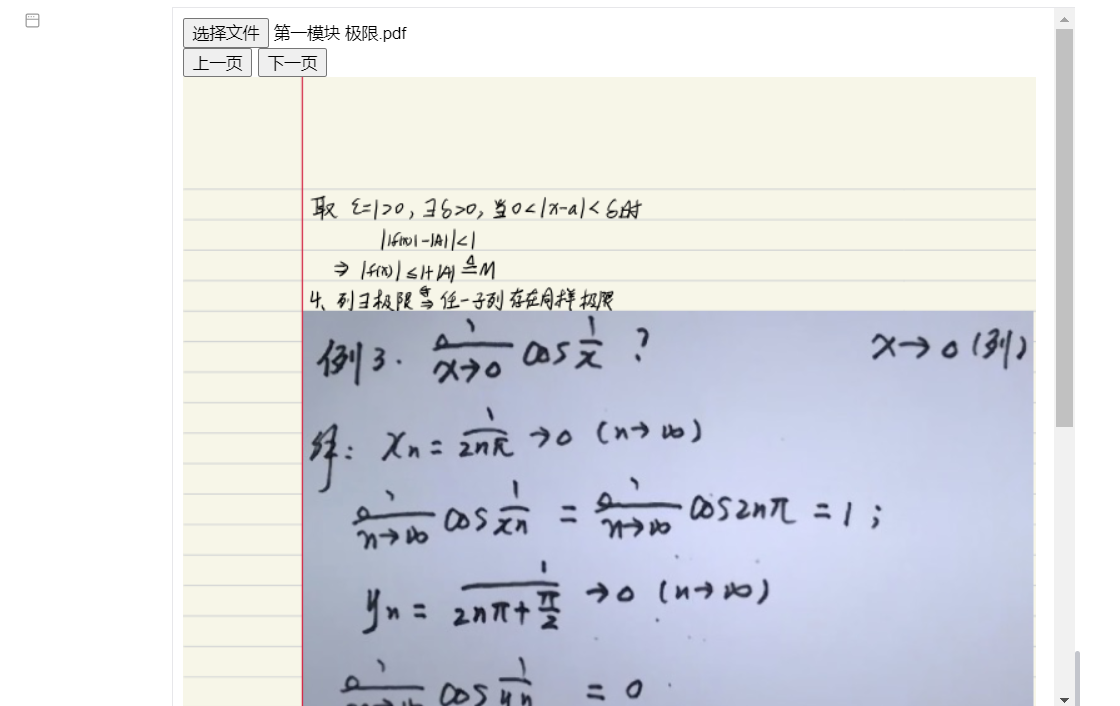 选择文件 第一模块 极限.pdf
上一页 下一页
取 ε=1>0, ∃δ>0, 当0<|x-a|<δ时
||f(x)|-|A||<1
⇒ |f(x)|≤1+|A| ≜ M
4、列∃极限 ⇒ 任一子列存在同样极限
例3. lim x→0 cos 1/x ?
x→0 (列)
解: xn = 1/2nπ →0 (n→∞)
lim n→∞ cos 1/xn = lim n→∞ cos2nπ = 1;
yn = 1/(2nπ+π/2) →0 (n→∞)
lim n→∞ cos 1/yn = 0